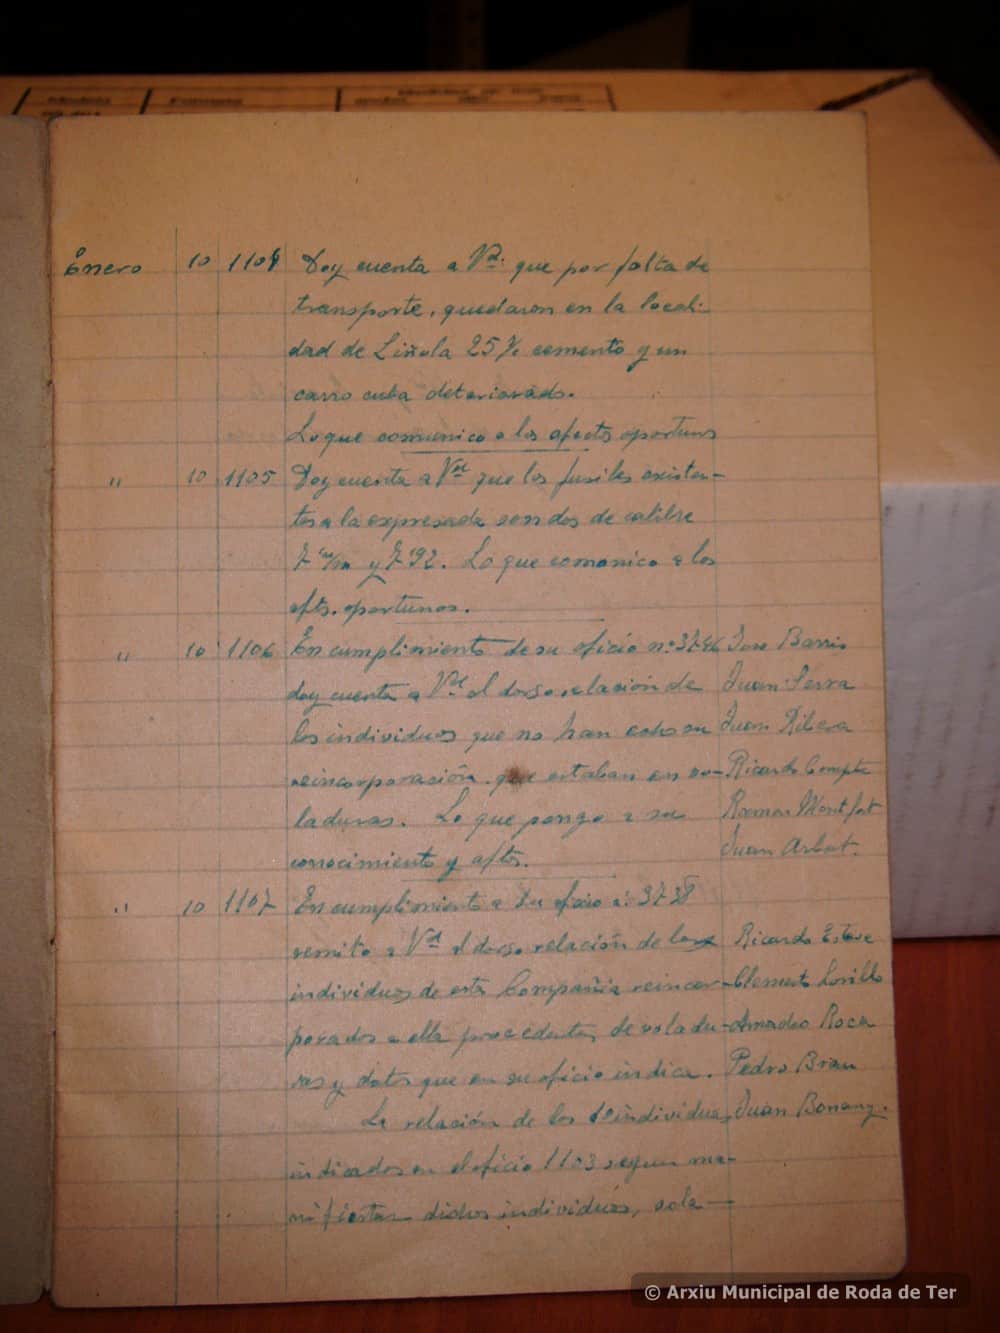 Enero 10 1104 Doy cuenta a Vd. que por falta de
transporte, quedaron en la locali-
dad de Liñola 25 cemento y un
carro cuba deteriorado.
Lo que comunico a los efectos oportunos
" 10 1105 Doy cuenta a Vd que los fusiles existen-
tes a la expresada son dos de calibre
7 m/m y 7'92. Lo que comonico a los
efts. oportunos.
" 10 1106 En cumplimiento de su oficio nº 3746 Jose Barris
doy cuenta a Vd al dorso relación de Juan Serra
los individuos que no han su Juan Ribera
reincorporación que estaban en vo- Ricardo Compte
laduras. Lo que pongo a su Ramon Montfat
conocimiento y aftos. Juan Arbat.
" 10 1107 En cumplimiento a su oficio nº 3738
remito a Vd al dorso relación de los Ricardo Esteve
individuos de esta Compañia reincor- Clemente
porados a ella procedentes de voladu- Amadeo Roca
ras y datos que en su oficio indica. Pedro Brau
La relación de los individuos Juan Bonany.
indicados en el oficio 1103 segun ma-
nifiestan dichos individuos, sola
© Arxiu Municipal de Roda de Ter